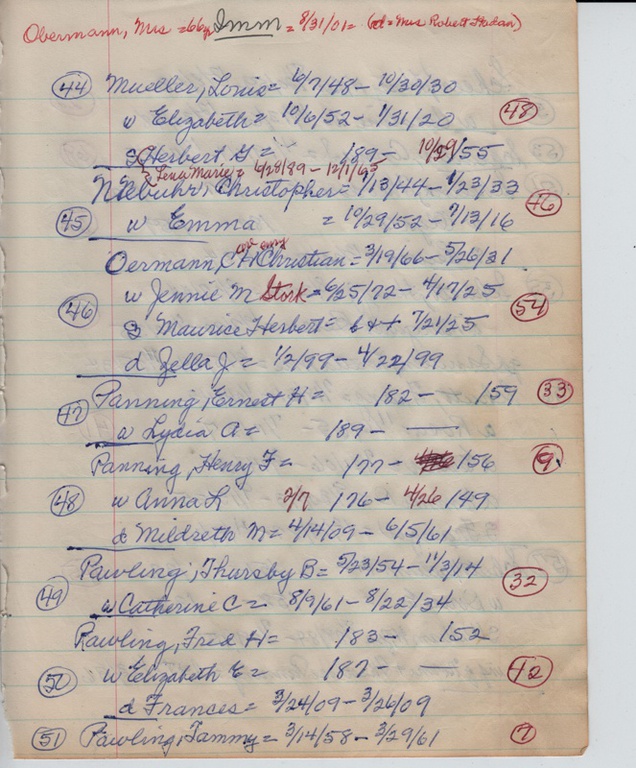 Obermann, Mrs = 66y Imm = 8/31/01 = (d = Mrs Robert Hadan)
44 Mueller, Louis = 6/7/48 - 10/30/30
w Elizabeth = 10/6/52 - 1/31/20 48
S Herbert G = 189 - 10/29/55
{ Lena Marie = 6/28/89 - 12/1/65
Niebuhr, Christopher = 1/13/44 - 1/23/33 46
45 w Emma = 10/29/52 - 7/13/16
Oermann, C H Christian = 3/19/66 - 5/26/31
w Jennie M Stork = 6/25/72 - 4/17/25
46 54
S Maurice Herbert = b & + 7/21/25
d Zella J = 1/2/99 - 4/22/99
Panning, Ernest H = 182 - 159 33
47 w Lydia A = 189 -
Panning, Henry F = 177 - 156 9
48 w Anna L 2/7 176 - 4/26 149
d Mildreth M = 4/14/09 - 6/5/61
Pawling, Thursby B = 5/23/54 - 11/3/14 32
49 w Catherine C = 8/9/61 - 8/22/34
Pawling, Fred H = 183 - 152
50 w Elizabeth E = 187 - 42
d Frances = 3/24/09 - 3/26/09
51 Pawling, Tammy = 3/14/58 - 3/29/61 7